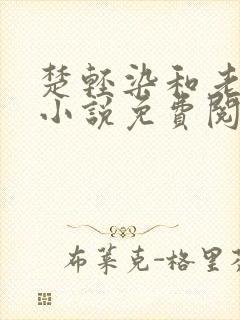 楚輕染和老
小說免費閱
布萊克-格里芬